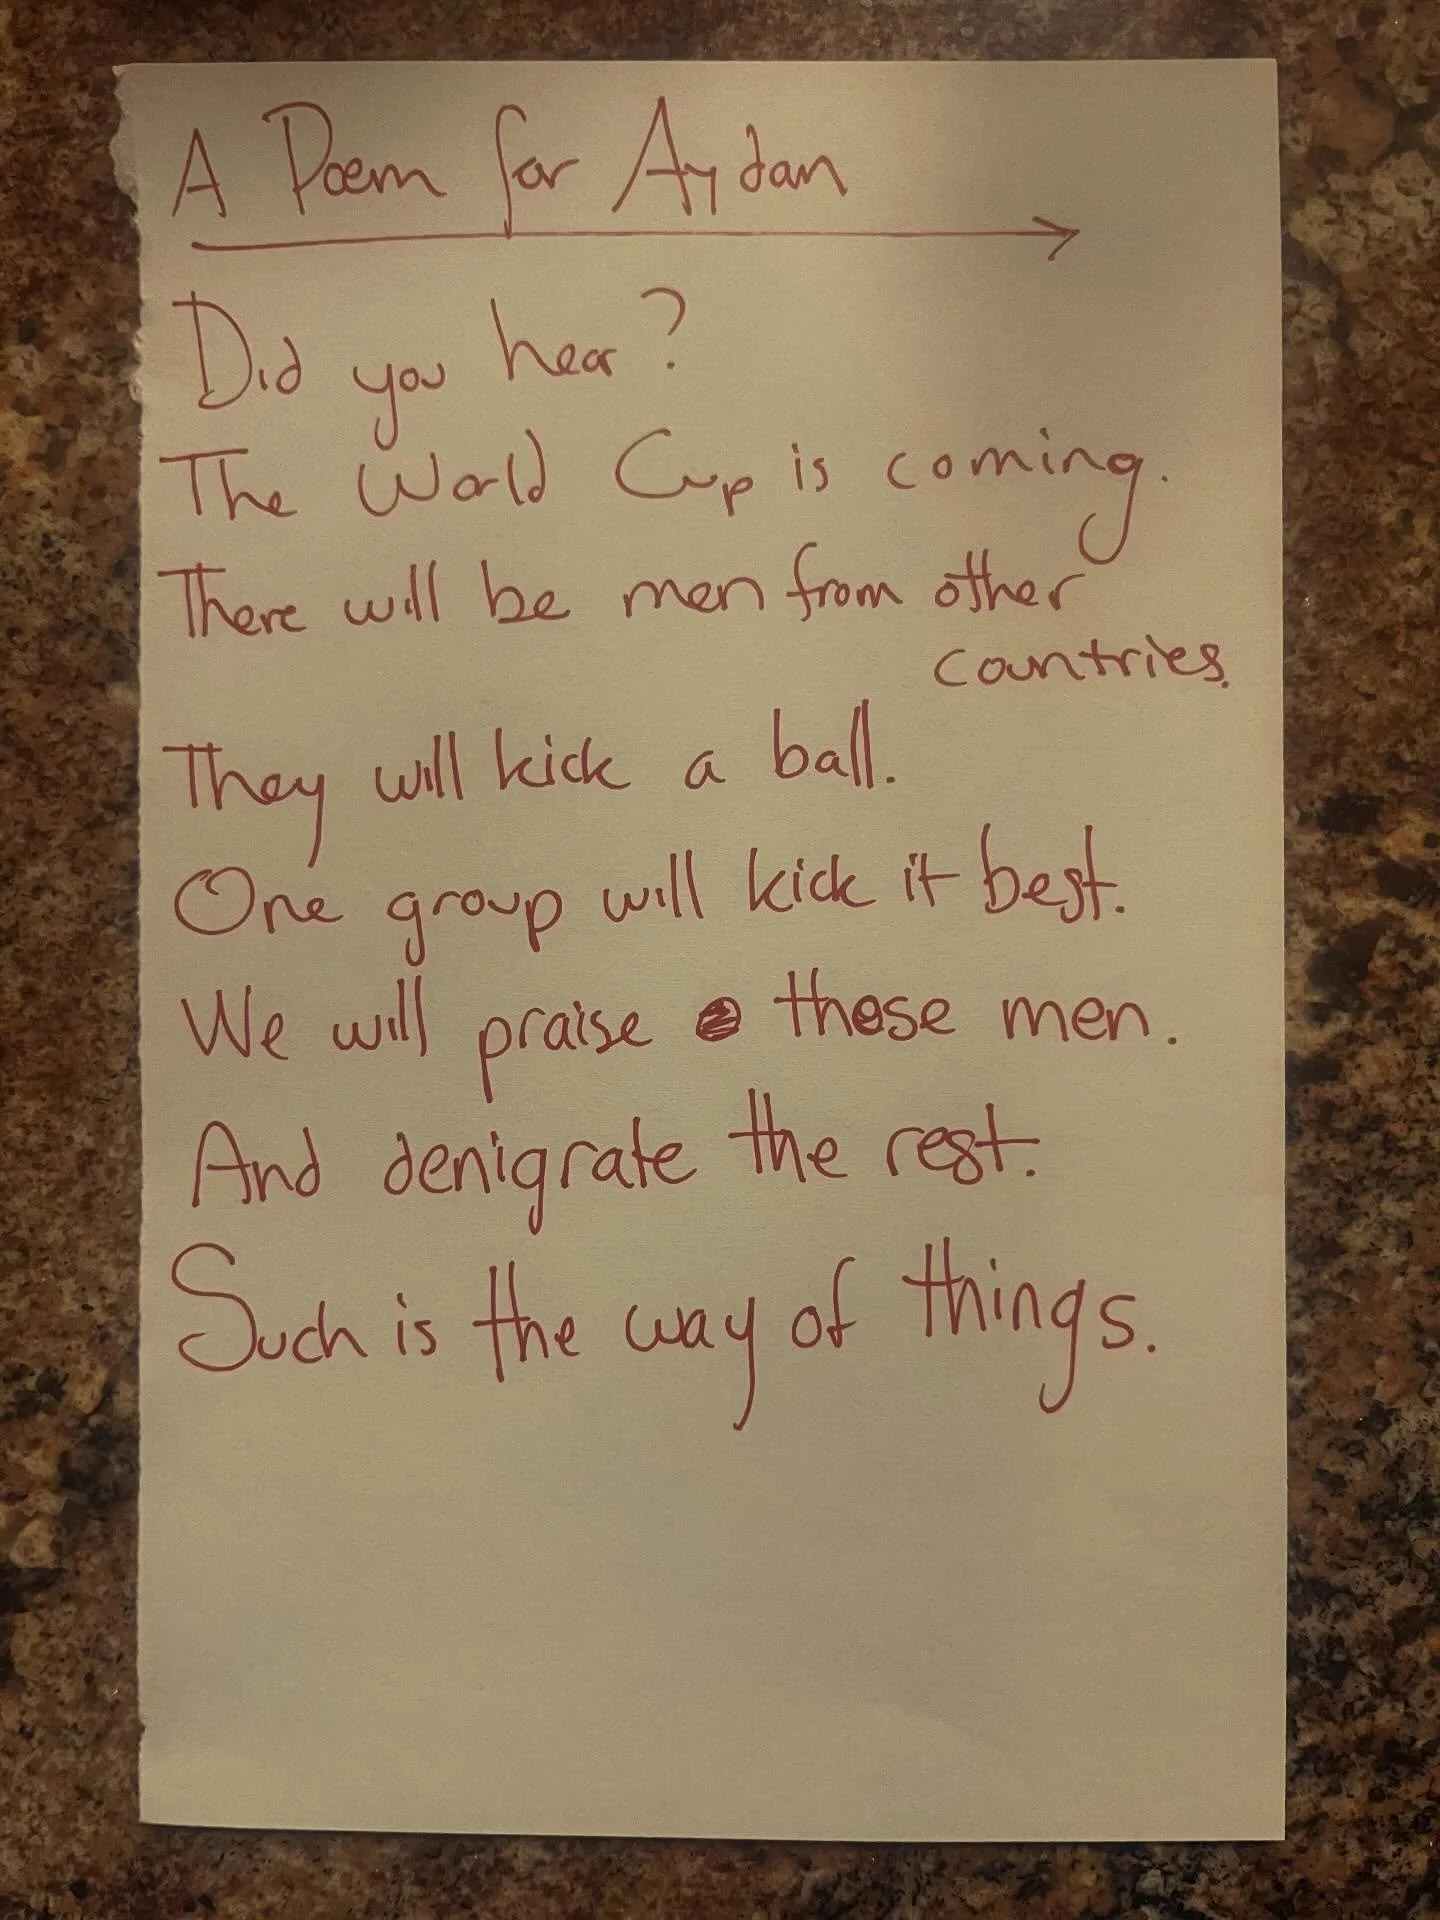 A Poem for Aydan
Did you hear?
The World Cup is coming.
There will be men from other
countries.
They will kick a ball.
One group will kick it best.
We will praise those men.
And denigrate the rest.
Such is the way of things.